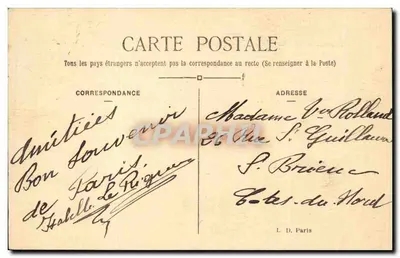 CARTE POSTALE
Tous les pays étrangers n'acceptent pas la correspondance au recto (Se renseigner à la Poste)
CORRESPONDANCE
Amitiées
Bon Souvenir
de Paris.
Isabelle Le
ADRESSE
Madame Vve Rolland
26 Rue St Guillaume
St. Brieuc
Cotes-du-Nord
I. D. Paris